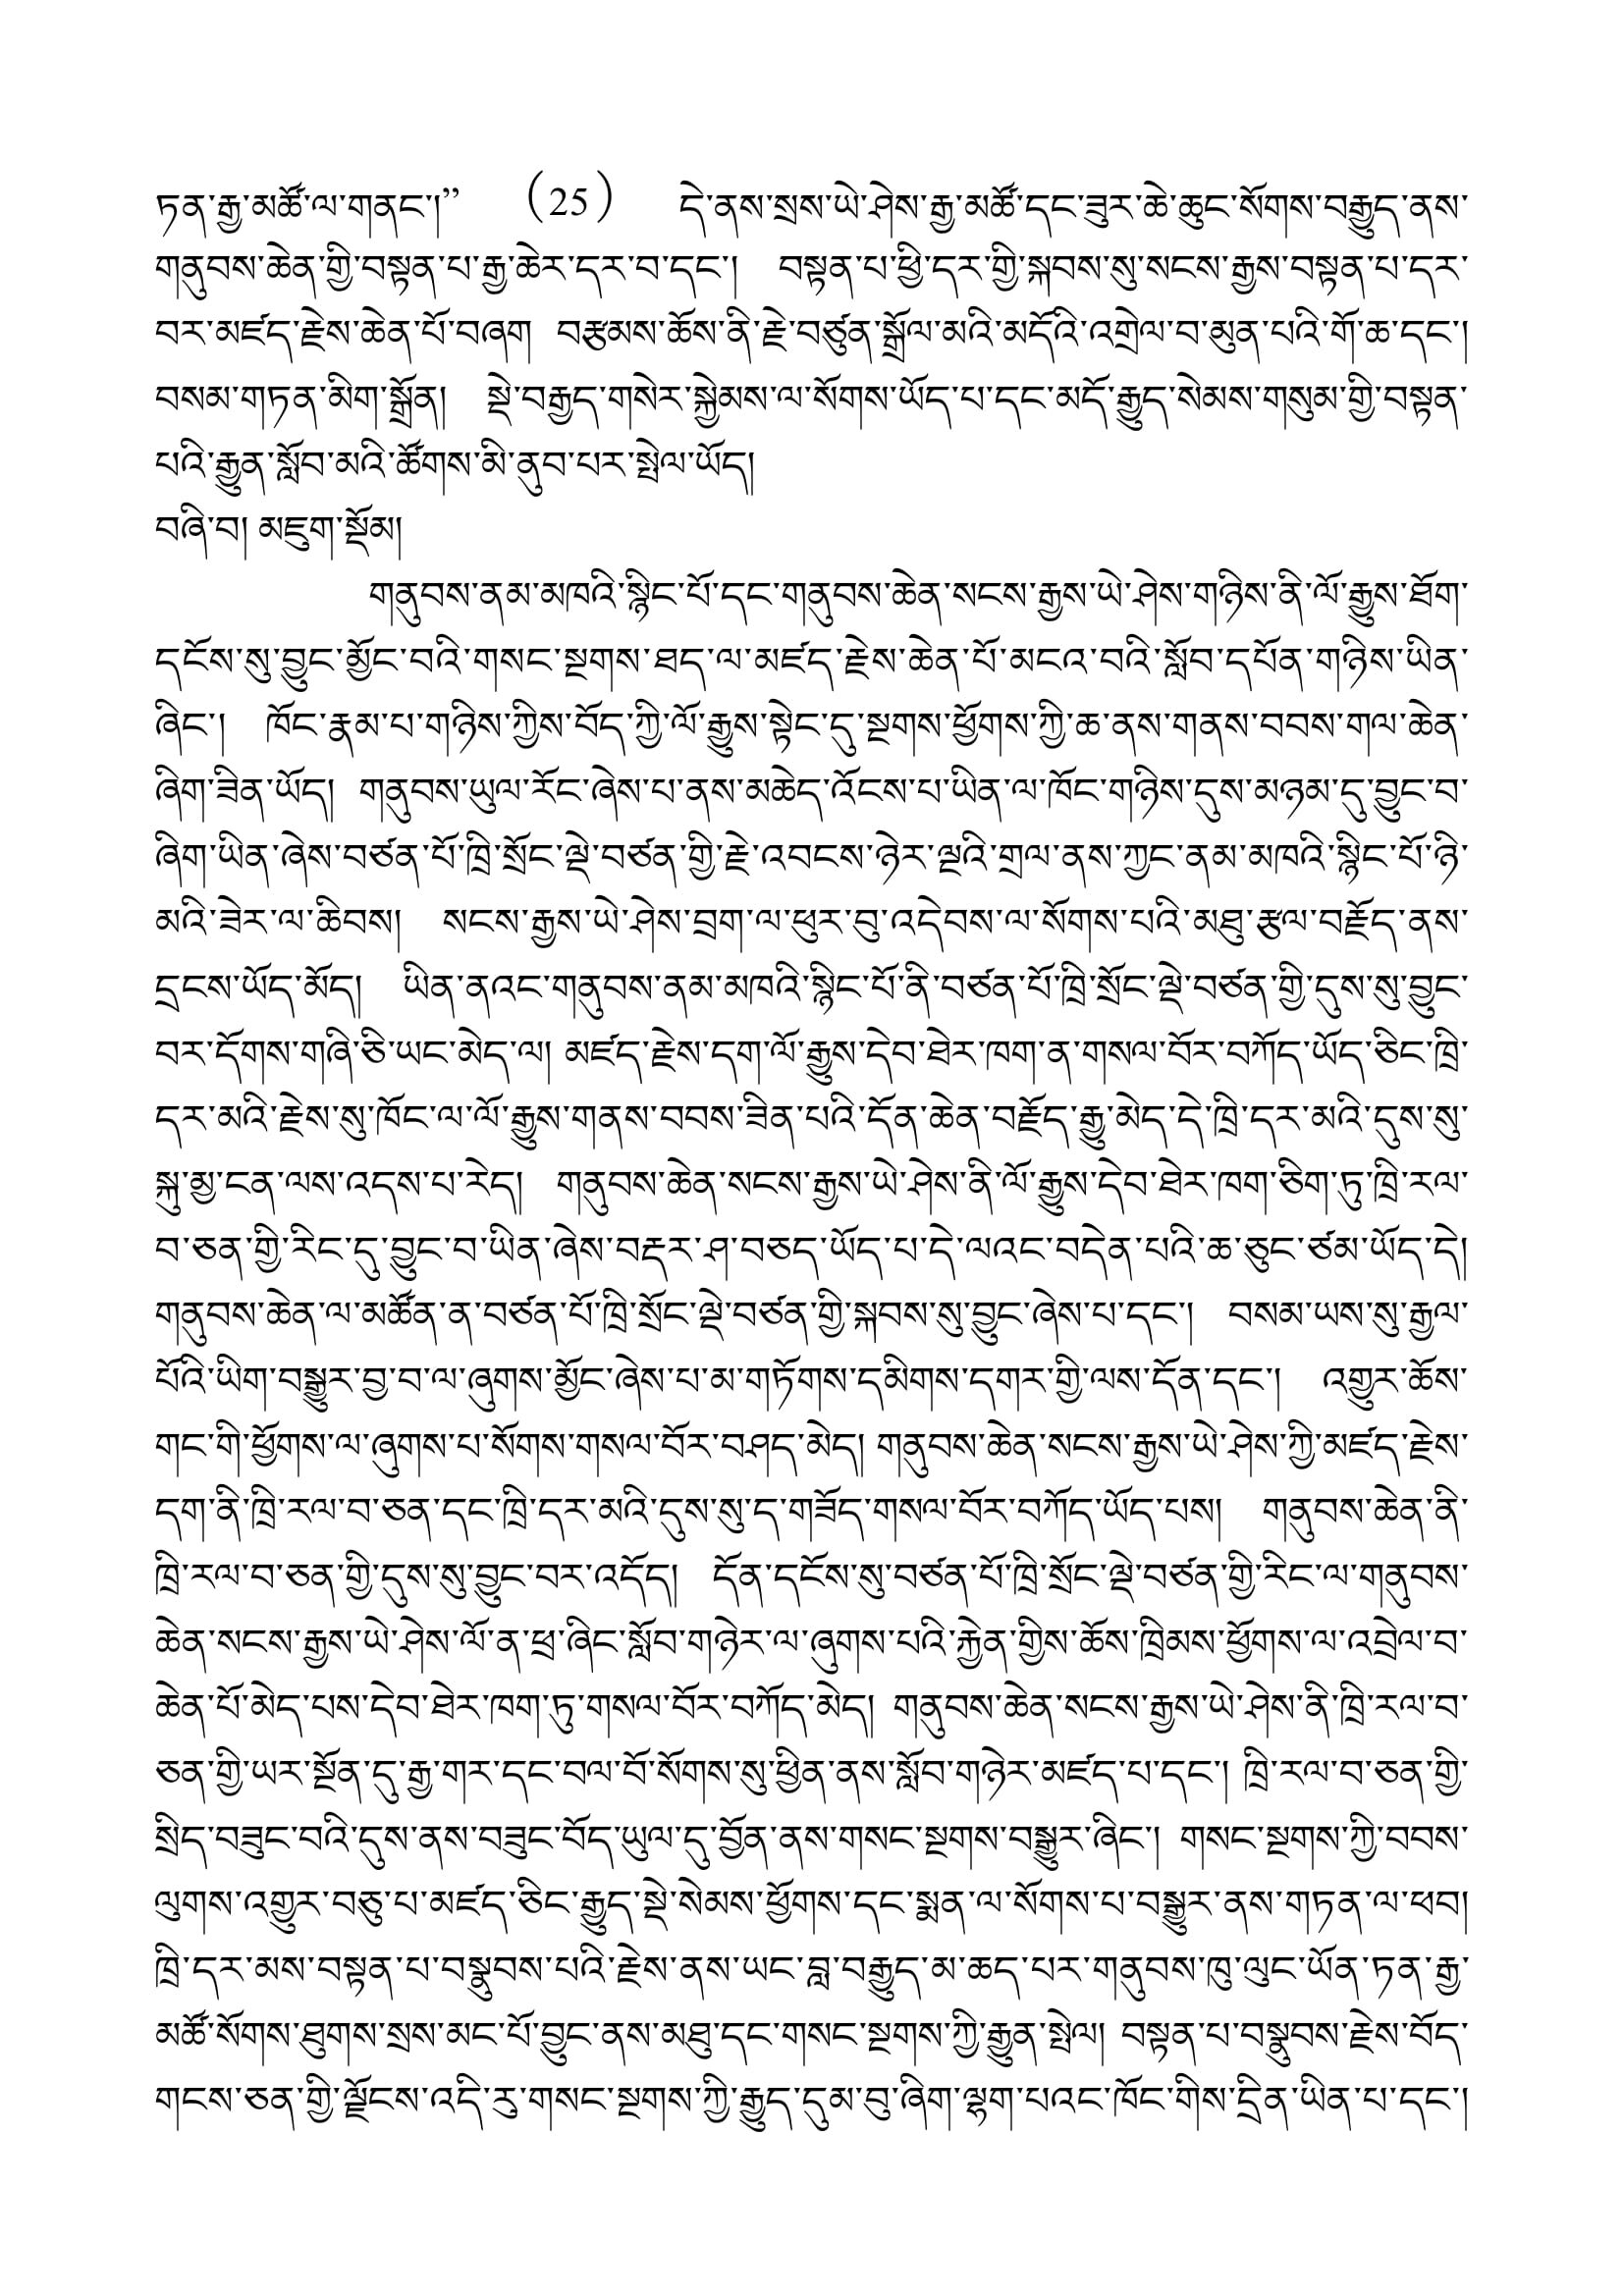 ཏན་རྒྱ་མཚོ་ལ་གནང་།” （25） དེ་ནས་སྲས་ཡེ་ཤེས་རྒྱ་མཚོ་དང་ཟུར་ཆེ་ཆུང་སོགས་བརྒྱུད་ནས་
གནུབས་ཆེན་གྱི་བསྟན་པ་རྒྱ་ཆེར་དར་བ་དང་། བསྟན་པ་ཕྱི་དར་གྱི་སྐབས་སུ་སངས་རྒྱས་བསྟན་པ་དར་
བར་མཛད་རྗེས་ཆེན་པོ་བཞག བརྩམས་ཆོས་ནི་རྗེ་བཙུན་སྒྲོལ་མའི་མདོའི་འགྲེལ་བ་མུན་པའི་གོ་ཆ་དང་།
བསམ་གཏན་མིག་སྒྲོན། སྡེ་བརྒྱད་གསེར་སྐྱེམས་ལ་སོགས་ཡོད་པ་དང་མདོ་རྒྱུད་སེམས་གསུམ་གྱི་བསྟན་
པའི་རྒྱུན་སློབ་མའི་ཚོགས་མི་ནུབ་པར་སྤེལ་ཡོད།
བཞི་བ། མཇུག་སྡོམ།
གནུབས་ནམ་མཁའི་སྙིང་པོ་དང་གནུབས་ཆེན་སངས་རྒྱས་ཡེ་ཤེས་གཉིས་ནི་ལོ་རྒྱུས་ཐོག་
དངོས་སུ་བྱུང་མྱོང་བའི་གསང་སྔགས་ཐད་ལ་མཛད་རྗེས་ཆེན་པོ་མངའ་བའི་སློབ་དཔོན་གཉིས་ཡིན་
ཞིང་། ཁོང་རྣམ་པ་གཉིས་ཀྱིས་བོད་ཀྱི་ལོ་རྒྱུས་སྟེང་དུ་སྔགས་ཕྱོགས་ཀྱི་ཆ་ནས་གནས་བབས་གལ་ཆེན་
ཞིག་ཟིན་ཡོད། གནུབས་ཡུལ་རོང་ཞེས་པ་ནས་མཆེད་འོངས་པ་ཡིན་ལ་ཁོང་གཉིས་དུས་མཉམ་དུ་བྱུང་བ་
ཞིག་ཡིན་ཞེས་བཙན་པོ་ཁྲི་སྲོང་ལྡེ་བཙན་གྱི་རྗེ་འབངས་ཉེར་ལྔའི་གྲལ་ནས་ཀྱང་ནམ་མཁའི་སྙིང་པོ་ཉི་
མའི་ཟེར་ལ་ཆིབས། སངས་རྒྱས་ཡེ་ཤེས་བྲག་ལ་ཕུར་བུ་འདེབས་ལ་སོགས་པའི་མཐུ་རྩལ་བརྗོད་ནས་
དྲངས་ཡོད་མོད། ཡིན་ནའང་གནུབས་ནམ་མཁའི་སྙིང་པོ་ནི་བཙན་པོ་ཁྲི་སྲོང་ལྡེ་བཙན་གྱི་དུས་སུ་བྱུང་
བར་དོགས་གཞི་ཅི་ཡང་མེད་ལ། མཛད་རྗེས་དག་ལོ་རྒྱུས་དེབ་ཐེར་ཁག་ན་གསལ་བོར་བཀོད་ཡོད་ཅིང་ཁྲི་
དར་མའི་རྗེས་སུ་ཁོང་ལ་ལོ་རྒྱུས་གནས་བབས་ཟིན་པའི་དོན་ཆེན་བརྗོད་རྒྱུ་མེད་དེ་ཁྲི་དར་མའི་དུས་སུ་
སྐུ་མྱ་ངན་ལས་འདས་པ་རེད། གནུབས་ཆེན་སངས་རྒྱས་ཡེ་ཤེས་ནི་ལོ་རྒྱུས་དེབ་ཐེར་ཁག་ཅིག་ཏུ་ཁྲི་རལ་
བ་ཅན་གྱི་རིང་དུ་བྱུང་བ་ཡིན་ཞེས་བརྡར་ཤ་བཅད་ཡོད་པ་དེ་ལའང་བདེན་པའི་ཆ་ཅུང་ཙམ་ཡོད་དེ།
གནུབས་ཆེན་ལ་མཚོན་ན་བཙན་པོ་ཁྲི་སྲོང་ལྡེ་བཙན་གྱི་སྐབས་སུ་བྱུང་ཞེས་པ་དང་། བསམ་ཡས་སུ་རྒྱལ་
པོའི་ཡིག་བསྒྱུར་བྱ་བ་ལ་ཞུགས་མྱོང་ཞེས་པ་མ་གཏོགས་དམིགས་དགར་གྱི་ལས་དོན་དང་། འགྱུར་ཆོས་
གང་གི་ཕྱོགས་ལ་ཞུགས་པ་སོགས་གསལ་བོར་བཤད་མེད། གནུབས་ཆེན་སངས་རྒྱས་ཡེ་ཤེས་ཀྱི་མཛད་རྗེས་
དག་ནི་ཁྲི་རལ་བ་ཅན་དང་ཁྲི་དར་མའི་དུས་སུ་ད་གཟོད་གསལ་བོར་བཀོད་ཡོད་པས། གནུབས་ཆེན་ནི་
ཁྲི་རལ་བ་ཅན་གྱི་དུས་སུ་བྱུང་བར་འདོད། དོན་དངོས་སུ་བཙན་པོ་ཁྲི་སྲོང་ལྡེ་བཙན་གྱི་རིང་ལ་གནུབས་
ཆེན་སངས་རྒྱས་ཡེ་ཤེས་ལོ་ན་ཕྲ་ཞིང་སློབ་གཉེར་ལ་ཞུགས་པའི་རྐྱེན་གྱིས་ཆོས་ཁྲིམས་ཕྱོགས་ལ་འབྲེལ་བ་
ཆེན་པོ་མེད་པས་དེབ་ཐེར་ཁག་ཏུ་གསལ་བོར་བཀོད་མེད། གནུབས་ཆེན་སངས་རྒྱས་ཡེ་ཤེས་ནི་ཁྲི་རལ་བ་
ཅན་གྱི་ཡར་སྔོན་དུ་རྒྱ་གར་དང་བལ་བོ་སོགས་སུ་ཕྱིན་ནས་སློབ་གཉེར་མཛད་པ་དང་། ཁྲི་རལ་བ་ཅན་གྱི་
སྲིད་བཟུང་བའི་དུས་ནས་བཟུང་བོད་ཡུལ་དུ་བྱོན་ནས་གསང་སྔགས་བསྒྱུར་ཞིང་། གསང་སྔགས་ཀྱི་བབས་
ལུགས་འགྱུར་བཅུ་པ་མཛད་ཅིང་རྒྱུད་སྡེ་སེམས་ཕྱོགས་དང་སྨན་ལ་སོགས་པ་བསྒྱུར་ནས་གཏན་ལ་ཕབ།
ཁྲི་དར་མས་བསྟན་པ་བསྣུབས་པའི་རྗེས་ནས་ཡང་བླ་བརྒྱུད་མ་ཆད་པར་གནུབས་ཁུ་ལུང་ཡོན་ཏན་རྒྱ་
མཚོ་སོགས་ཐུགས་སྲས་མང་པོ་བྱུང་ནས་མཐུ་དང་གསང་སྔགས་ཀྱི་རྒྱུན་སྤེལ། བསྟན་པ་བསྣུབས་རྗེས་བོད་
གངས་ཅན་གྱི་ལྗོངས་འདི་རུ་གསང་སྔགས་ཀྱི་རྒྱུད་དུམ་བུ་ཞིག་ལྷག་པའང་ཁོང་གིས་དྲིན་ཡིན་པ་དང་།